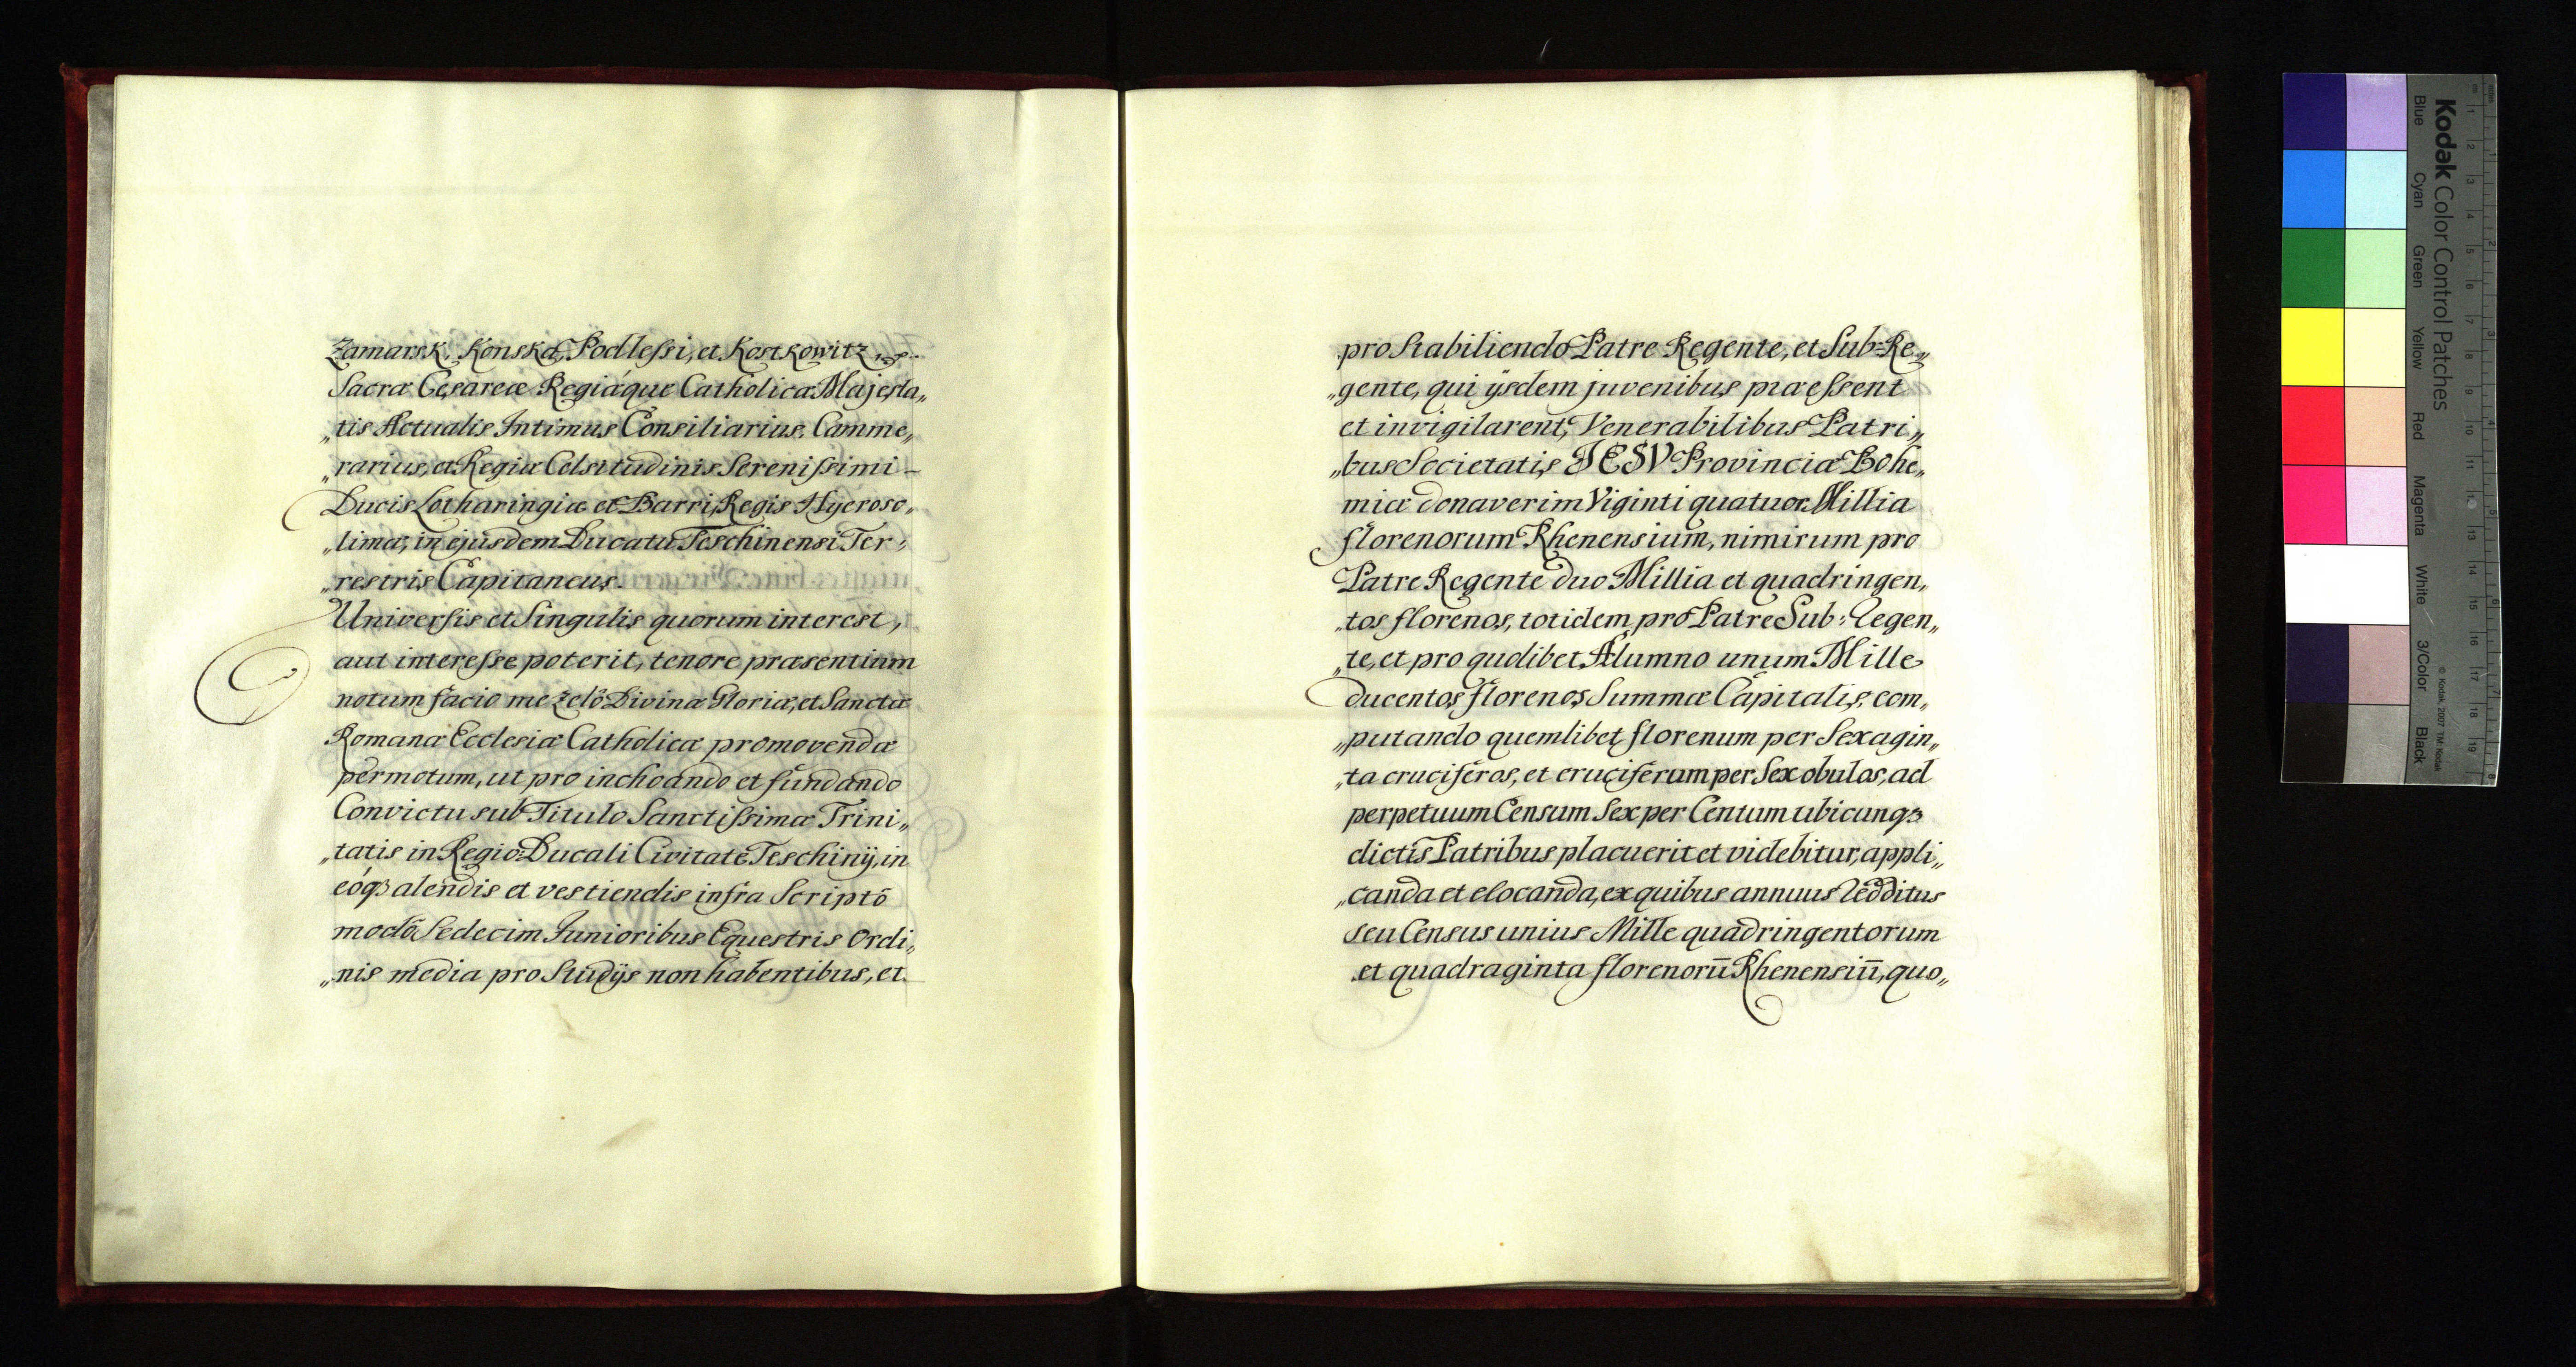 Zamarsk, Konska, Podlessi, et Kostkowitz
Sacræ Cesareæ Regiáque Catholicæ Majesta„
„tis Actualis Intimus Consiliarius, Camme„
„rarius, et Regiæ Celsitudinis Serenissimi –
Ducis Lotharingiæ et Barri, Regis Hyeroso„
„limæ, in ejusdem Ducatu Teschinensi Ter:
„restris Capitaneus.
Universis et Singulis quorum interest,
aut interesse poterit, tenore præsentium
notum facio me zelô Divinæ Gloriæ, et Sanctæ
Romanæ Ecclesiæ Catholicæ promovendæ
permotum, ut pro inchoando et fundando
Convictu sub Titulo Sanctissimæ Trini„
„tatis in Regio-Ducali Civitate Teschinÿ, in
eóqȝ alendis et vestiendis infra Scriptô
modô Sedecim Junioribus Equestris Ordi„
„nis media pro Studÿs non habentibus, et
pro Stabiliendo Patre Regente, et Sub-Re„
„gente, qui ÿsdem juvenibus præessent
et invigilarent, Venerabilibus Patri„
„bus Societatis JESV Provinciæ Bohe„
miæ donaverim Viginti quatuor Millia
florenorum Rhenensium, nimirum pro
Patre Regente duo Millia et quadringen„
„tos florenos, totidem pro Patre Sub: Regen„
„te, et pro quolibet Alumno unum Mille
ducentos florenos Summæ Capitalis, com„
„putando quemlibet florenum per Sexagin„
„ta cruciferos, et cruciferum per Sex obulos, ad
perpetuum Censum Sex per Centum ubicunqȝ
dictis Patribus placuerit et videbitur, appli„
„canda et elocanda, ex quibus annuus Redditus
seu Census unius Mille quadringentorum
et quadraginta florenorū Rhenensiū, quo„
Kodak Color Control Patches
Blue Cyan Green Yellow Red Magenta White 3/Color Black
© Kodak, 2007 TM: Kodak